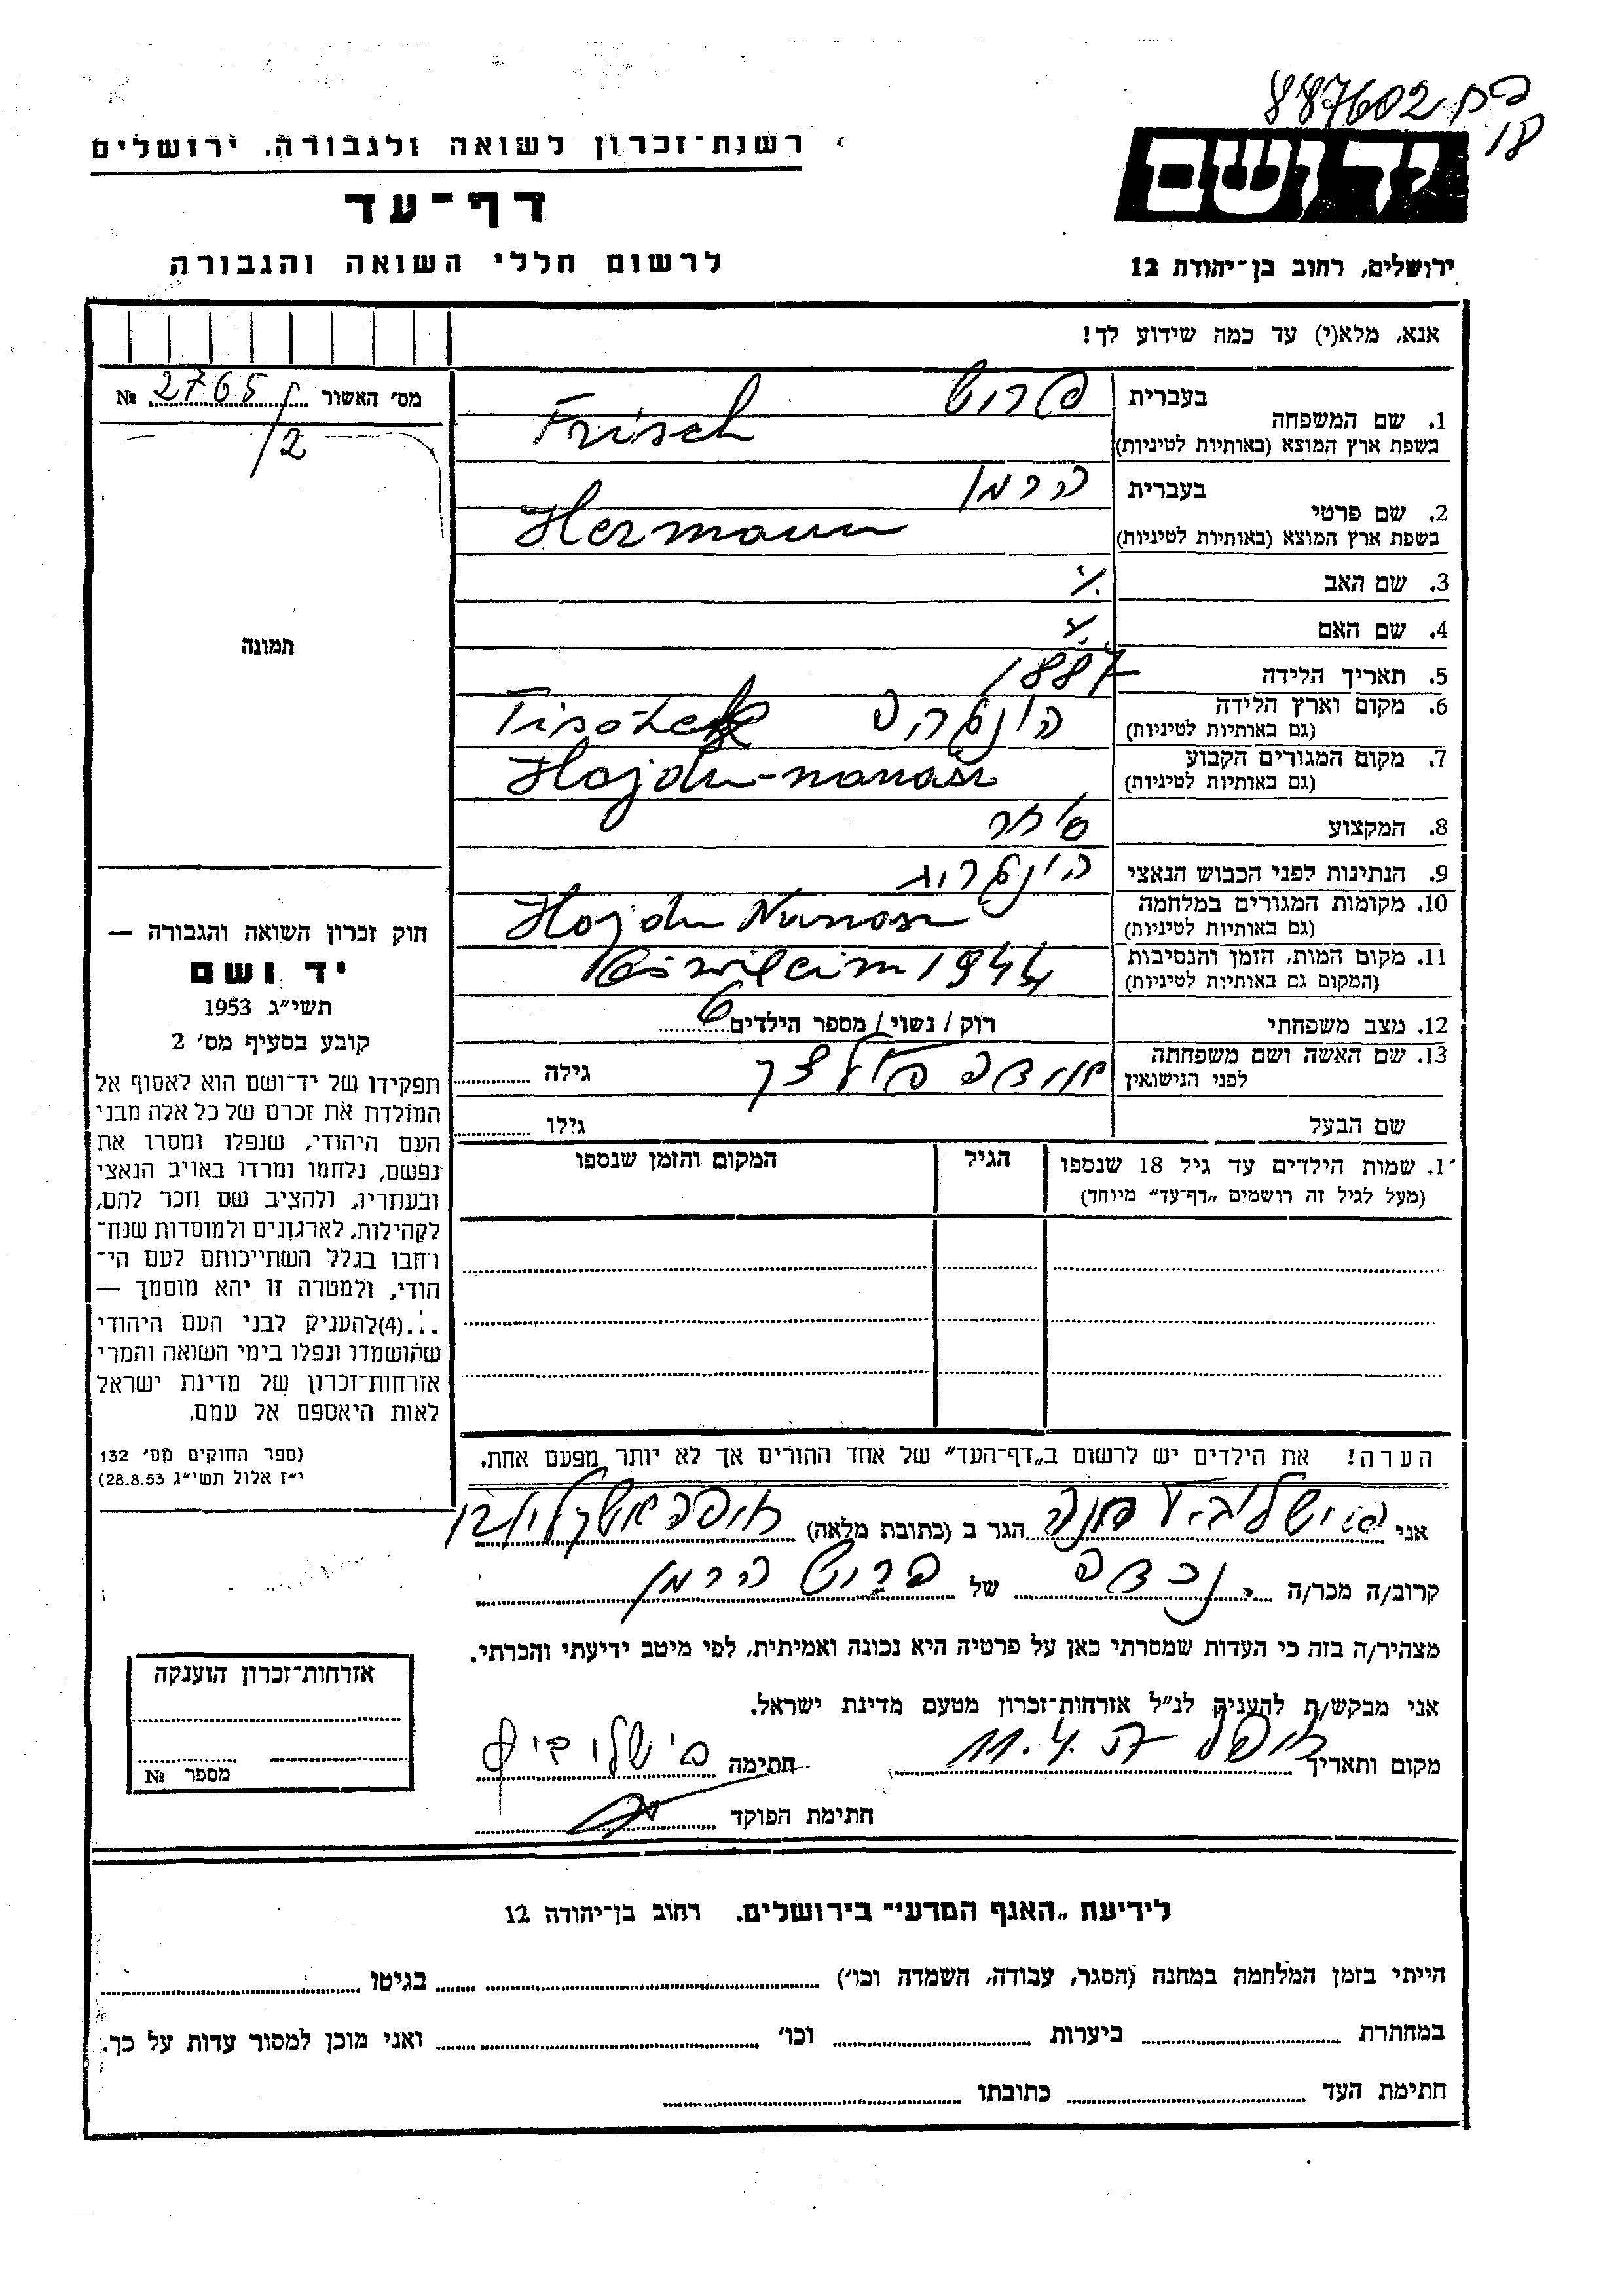 887602 פח
יד ושם
רשות־זכרון לשואה ולגבורה, ירושלים
דף־עד
לרשום חללי השואה והגבורה
ירושלים, רחוב בן־יהודה 12
אנא, מלא(י) עד כמה שידוע לך!
מס׳ האשור 2765/2 №
1. שם המשפחה בעברית פריש
בשפת ארץ המוצא (באותיות לטיניות) Frisch
2. שם פרטי בעברית הרמן
בשפת ארץ המוצא (באותיות לטיניות) Hermann
3. שם האב
4. שם האם
תמונה
5. תאריך הלידה 1887
6. מקום וארץ הלידה הונגריה
(גם באותיות לטיניות)
7. מקום המגורים הקבוע Hajdu-nanasz
(גם באותיות לטיניות)
8. המקצוע סוחר
9. הנתינות לפני הכבוש הנאצי הונגרית
10. מקומות המגורים במלחמה Hajdu Nanasz
(גם באותיות לטיניות)
11. מקום המות, הזמן והנסיבות Oswiecim 1944
(המקום גם באותיות לטיניות)
12. מצב משפחתי רוק / נשוי / מספר הילדים 6
13. שם האשה ושם משפחתה
לפני הנישואין גילה
שם הבעל גילו
1. שמות הילדים עד גיל 18 שנספו הגיל המקום והזמן שנספו
(מעל לגיל זה רושמים „דף־עד״ מיוחד)
חוק זכרון השואה והגבורה —
יד ושם
תשי״ג 1953
קובע בסעיף מס׳ 2
תפקידו של יד־ושם הוא לאסוף אל
המולדת את זכרם של כל אלה מבני
העם היהודי, שנפלו ומסרו את
נפשם, נלחמו ומרדו באויב הנאצי
ובעוזריו, ולהציב שם וזכר להם,
לקהילות, לארגונים ולמוסדות שנח־
רחבו בגלל השתייכותם לעם הי־
הודי, ולמטרה זו יהא מוסמך —
...(4) להעניק לבני העם היהודי
שהושמדו ונפלו בימי השואה והמרי
אזרחות־זכרון של מדינת ישראל
לאות היאספם אל עמם.
(ספר החוקים מס׳ 132
י״ז אלול תשי״ג 28.8.53)
הערה! את הילדים יש לרשום ב„דף־העד״ של אחד ההורים אך לא יותר מפעם אחת.
אני חנה הגר ב (כתובת מלאה) חיפה
קרוב/ה מכר/ה נכדה של פריש הרמן
מצהיר/ה בזה כי העדות שמסרתי כאן על פרטיה היא נכונה ואמיתית, לפי מיטב ידיעתי והכרתי.
אני מבקש/ת להעניק לנ״ל אזרחות־זכרון מטעם מדינת ישראל.
מקום ותאריך חיפה 11.4. חתימה
חתימת הפוקד
אזרחות־זכרון הוענקה
מספר №
לידיעת „האגף המדעי״ בירושלים. רחוב בן־יהודה 12
הייתי בזמן המלחמה במחנה (הסגר, עבודה, השמדה וכו׳) בגיטו
במחתרת ביערות וכו׳ ואני מוכן למסור עדות על כך.
חתימת העד כתובתו